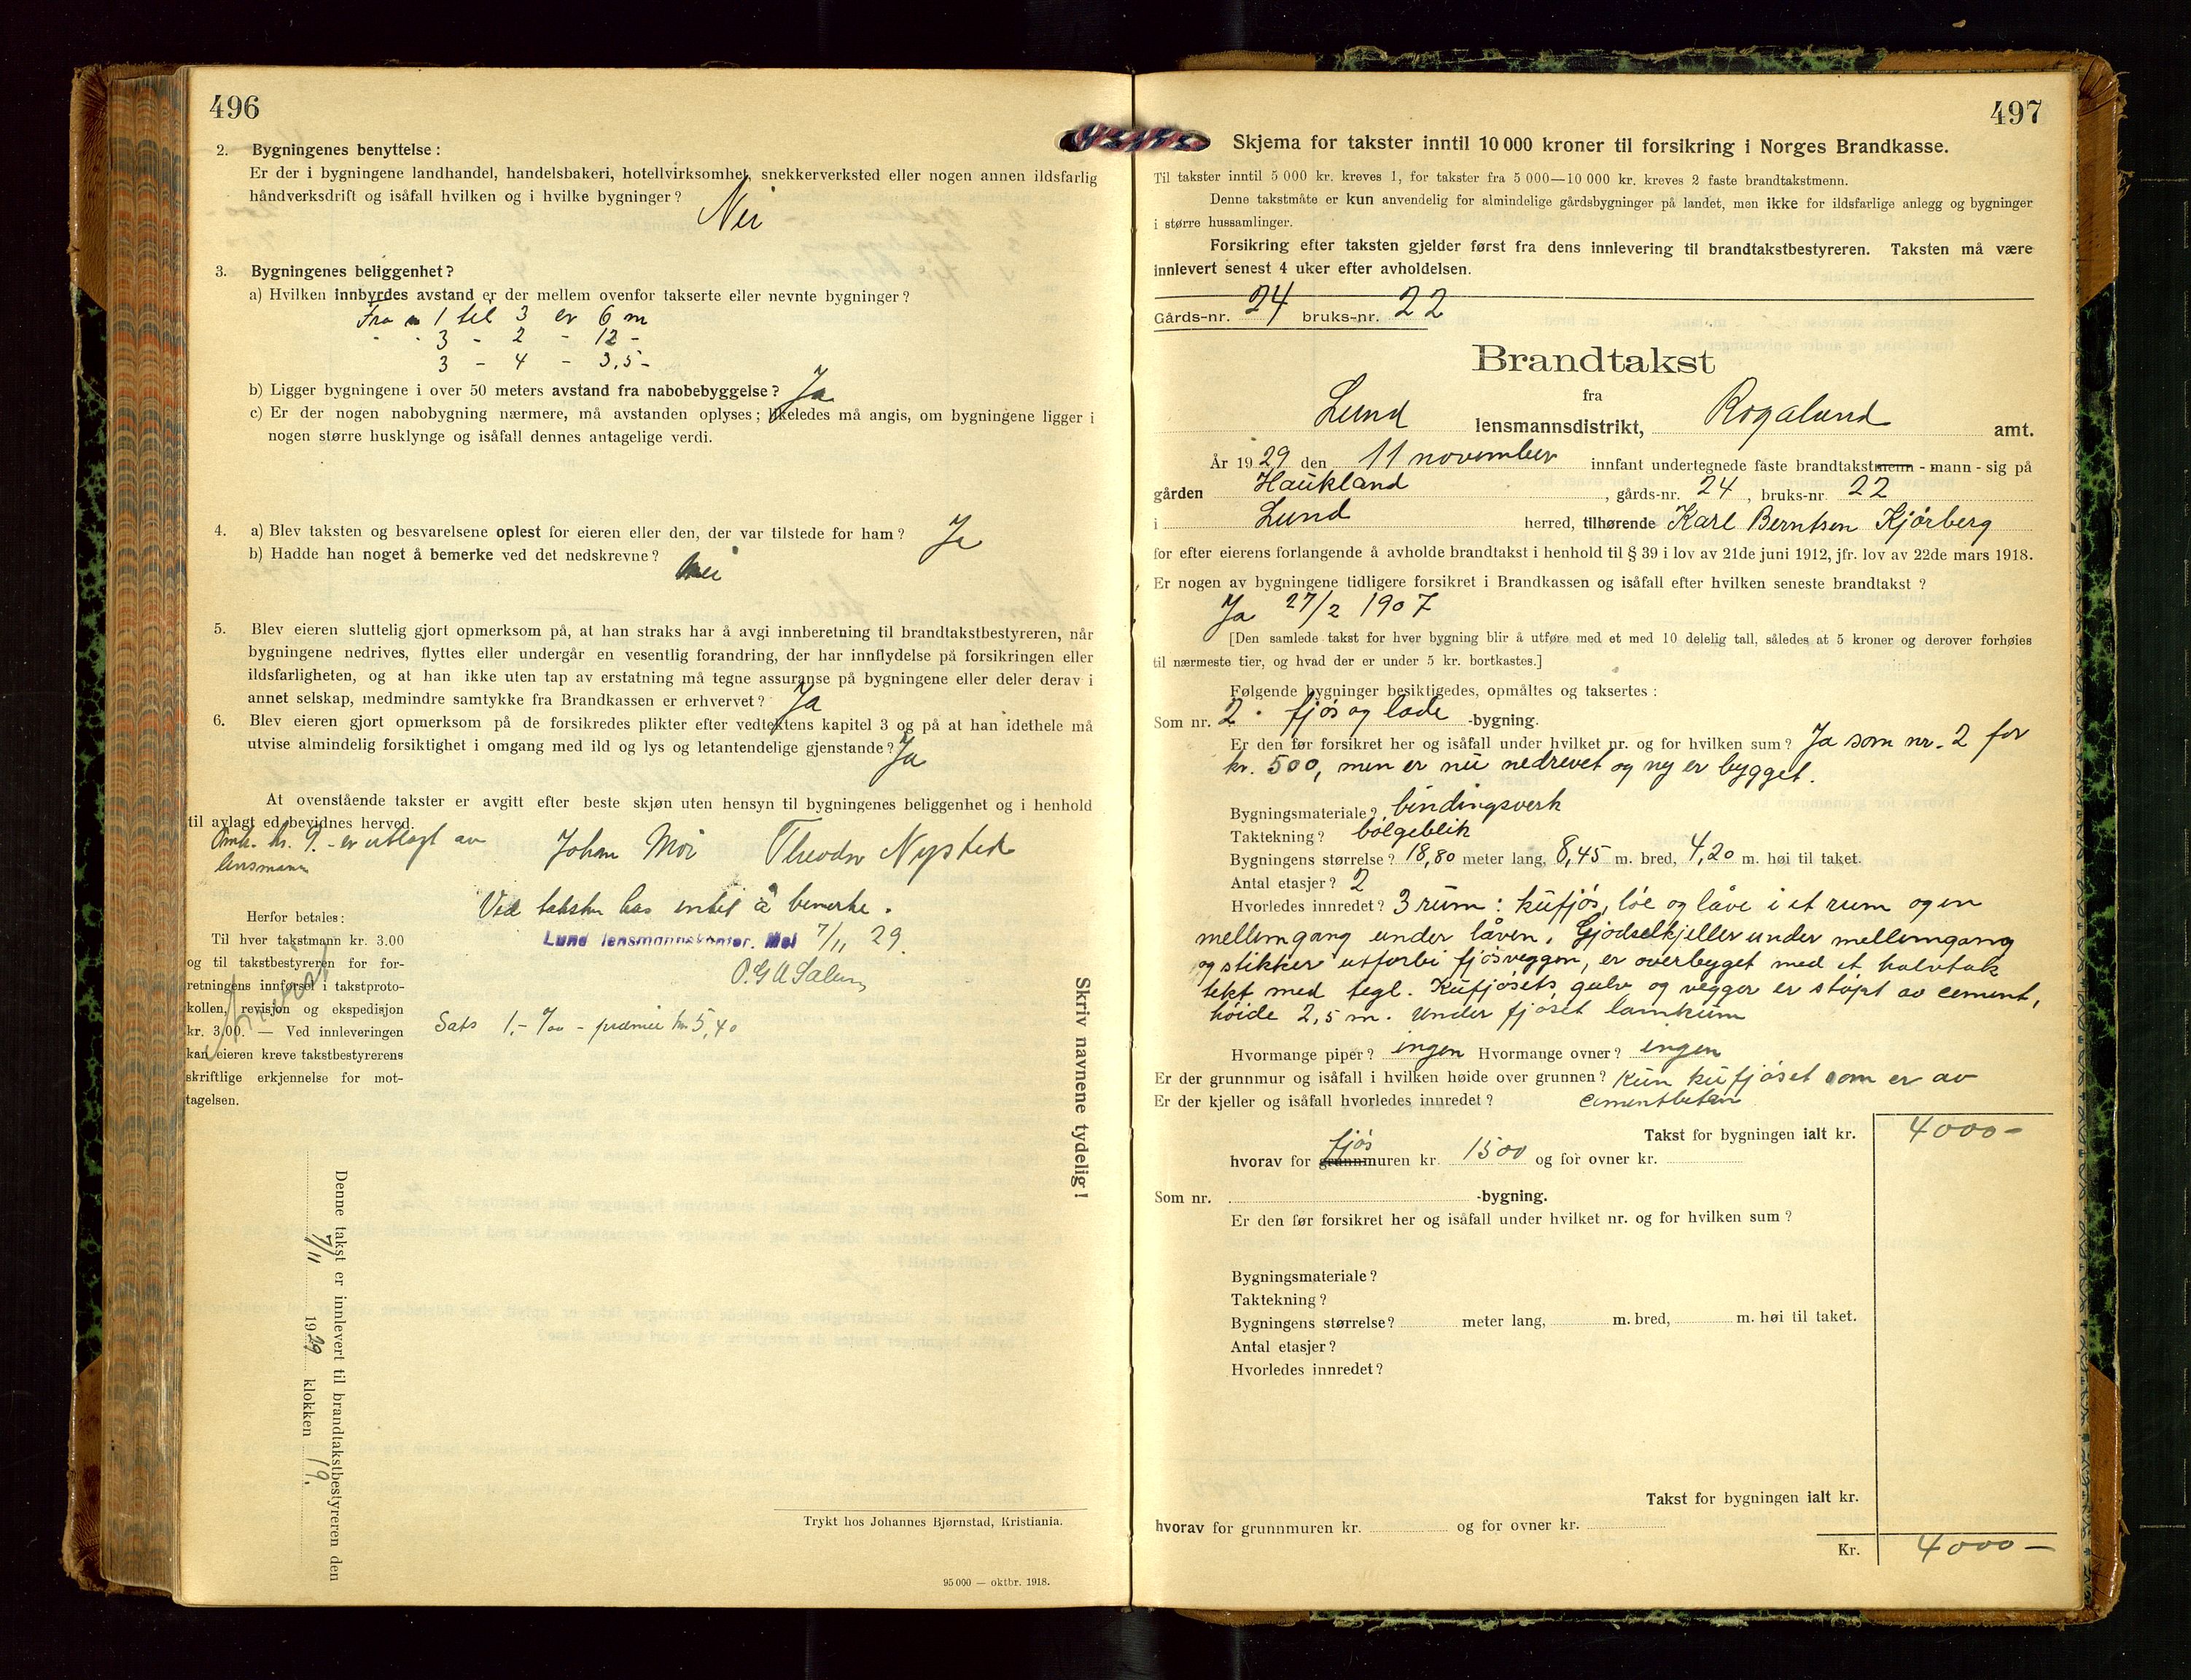 496
2. Bygningenes benyttelse:
Er der i bygningene landhandel, handelsbakeri, hotellvirksomhet, snekkerverksted eller nogen annen ildsfarlig
håndverksdrift og isåfall hvilken og i hvilke bygninger? Nei
3. Bygningenes beliggenhet?
a) Hvilken innbyrdes avstand er der mellem ovenfor takserte eller nevnte bygninger?
Fra 1 til 3 er 6 m
" " 3 - 2 - 12 -
3 - 4 - 3,5 -
b) Ligger bygningene i over 50 meters avstand fra nabobebyggelse? Ja
c) Er der nogen nabobygning nærmere, må avstanden oplyses; likeledes må angis, om bygningene ligger i
nogen større husklynge og isåfall dennes antagelige verdi.
4. a) Blev taksten og besvarelsene oplest for eieren eller den, der var tilstede for ham? Ja
b) Hadde han noget å bemerke ved det nedskrevne? Nei
5. Blev eieren sluttelig gjort opmerksom på, at han straks har å avgi innberetning til brandtakstbestyreren, når
bygningene nedrives, flyttes eller undergår en vesentlig forandring, der har innflydelse på forsikringen eller
ildsfarligheten, og at han ikke uten tap av erstatning må tegne assuranse på bygningene eller deler derav i
annet selskap, medmindre samtykke fra Brandkassen er erhvervet? Ja
6. Blev eieren gjort opmerksom på de forsikredes plikter efter vedtektens kapitel 3 og på at han idethele må
utvise almindelig forsiktighet i omgang med ild og lys og letantendelige gjenstande? Ja
At ovenstående takster er avgitt efter beste skjøn uten hensyn til bygningenes beliggenhet og i henhold
til avlagt ed bevidnes herved.
Omk. kr. 9.- er utlagt av
lensmann
Johan Moi Theodor Nysted
Ved taksten has intet å bemerke.
Lund lensmannskontor. Moi 7/11 29.
Sats 1.- ‰ - premie kr 5,40
Herfor betales:
Til hver takstmann kr. 3.00
og til takstbestyreren for for-
retningens innførsel i takstproto-
kollen, revisjon og ekspedisjon
kr. 3,00. — Ved innleveringen
kan eieren kreve takstbestyrerens
skriftlige erkjennelse for mot-
tagelsen.
Skriv navnene tydelig!
Denne takst er innlevert til brandtakstbestyreren den
7/11 1929 klokken 19.
Trykt hos Johannes Bjørnstad, Kristiania.
95 000 — oktbr. 1918.
497
Skjema for takster inntil 10 000 kroner til forsikring i Norges Brandkasse.
Til takster inntil 5 000 kr. kreves 1, for takster fra 5 000—10 000 kr. kreves 2 faste brandtakstmenn.
Denne takstmåte er kun anvendelig for almindelige gårdsbygninger på landet, men ikke for ildsfarlige anlegg og bygninger
i større hussamlinger.
Forsikring efter taksten gjelder først fra dens innlevering til brandtakstbestyreren. Taksten må være
innlevert senest 4 uker efter avholdelsen.
Gårds-nr. 24 bruks-nr. 22
Brandtakst
fra
Lund lensmannsdistrikt, Rogaland amt.
År 1929 den 11 november innfant undertegnede faste brandtakstmenn - mann - sig på
gården Haukland, gårds-nr. 24, bruks-nr. 22
i Lund herred, tilhørende Karl Berntsen Kjørberg
for efter eierens forlangende å avholde brandtakst i henhold til § 39 i lov av 21de juni 1912, jfr. lov av 22de mars 1918.
Er nogen av bygningene tidligere forsikret i Brandkassen og isåfall efter hvilken seneste brandtakst?
Ja 27/2 1907
[Den samlede takst for hver bygning blir å utføre med et med 10 delelig tall, således at 5 kroner og derover forhøies
til nærmeste tier, og hvad der er under 5 kr. bortkastes.]
Følgende bygninger besiktigedes, opmåltes og taksertes:
Som nr. 2. fjøs og lade -bygning.
Er den før forsikret her og isåfall under hvilket nr. og for hvilken sum? Ja som nr. 2 for
kr. 500, men er nu nedrevet og ny er bygget.
Bygningsmateriale? bindingsverk
Taktekning? bølgeblik
Bygningens størrelse? 18,80 meter lang, 8,45 m. bred, 4,20 m. høi til taket.
Antal etasjer? 2
Hvorledes innredet? 3 rum: kufjøs, løe og låve i et rum og en
mellemgang under låven. Gjødselkjeller under mellemgang
og stikker utforbi fjøsveggen, er overbyget med et halvtak
tekt med tegl. Kufjøsets gulv og vegger er støpt av cement,
høide 2,5 m. Under fjøset landkum
Hvormange piper? ingen Hvormange ovner? ingen
Er der grunnmur og isåfall i hvilken høide over grunnen? Kun kufjøset som er av
Er der kjeller og isåfall hvorledes innredet? cementbeton
Takst for bygningen ialt kr. 4000-
hvorav for grunnmuren fjøs kr. 1500 og for ovner kr.
Som nr. -bygning.
Er den før forsikret her og isåfall under hvilket nr. og for hvilken sum?
Bygningsmateriale?
Taktekning?
Bygningens størrelse? meter lang, m. bred, m. høi til taket.
Antal etasjer?
Hvorledes innredet?
Takst for bygningen ialt kr.
hvorav for grunnmuren kr. og for ovner kr.
Kr. 4000-